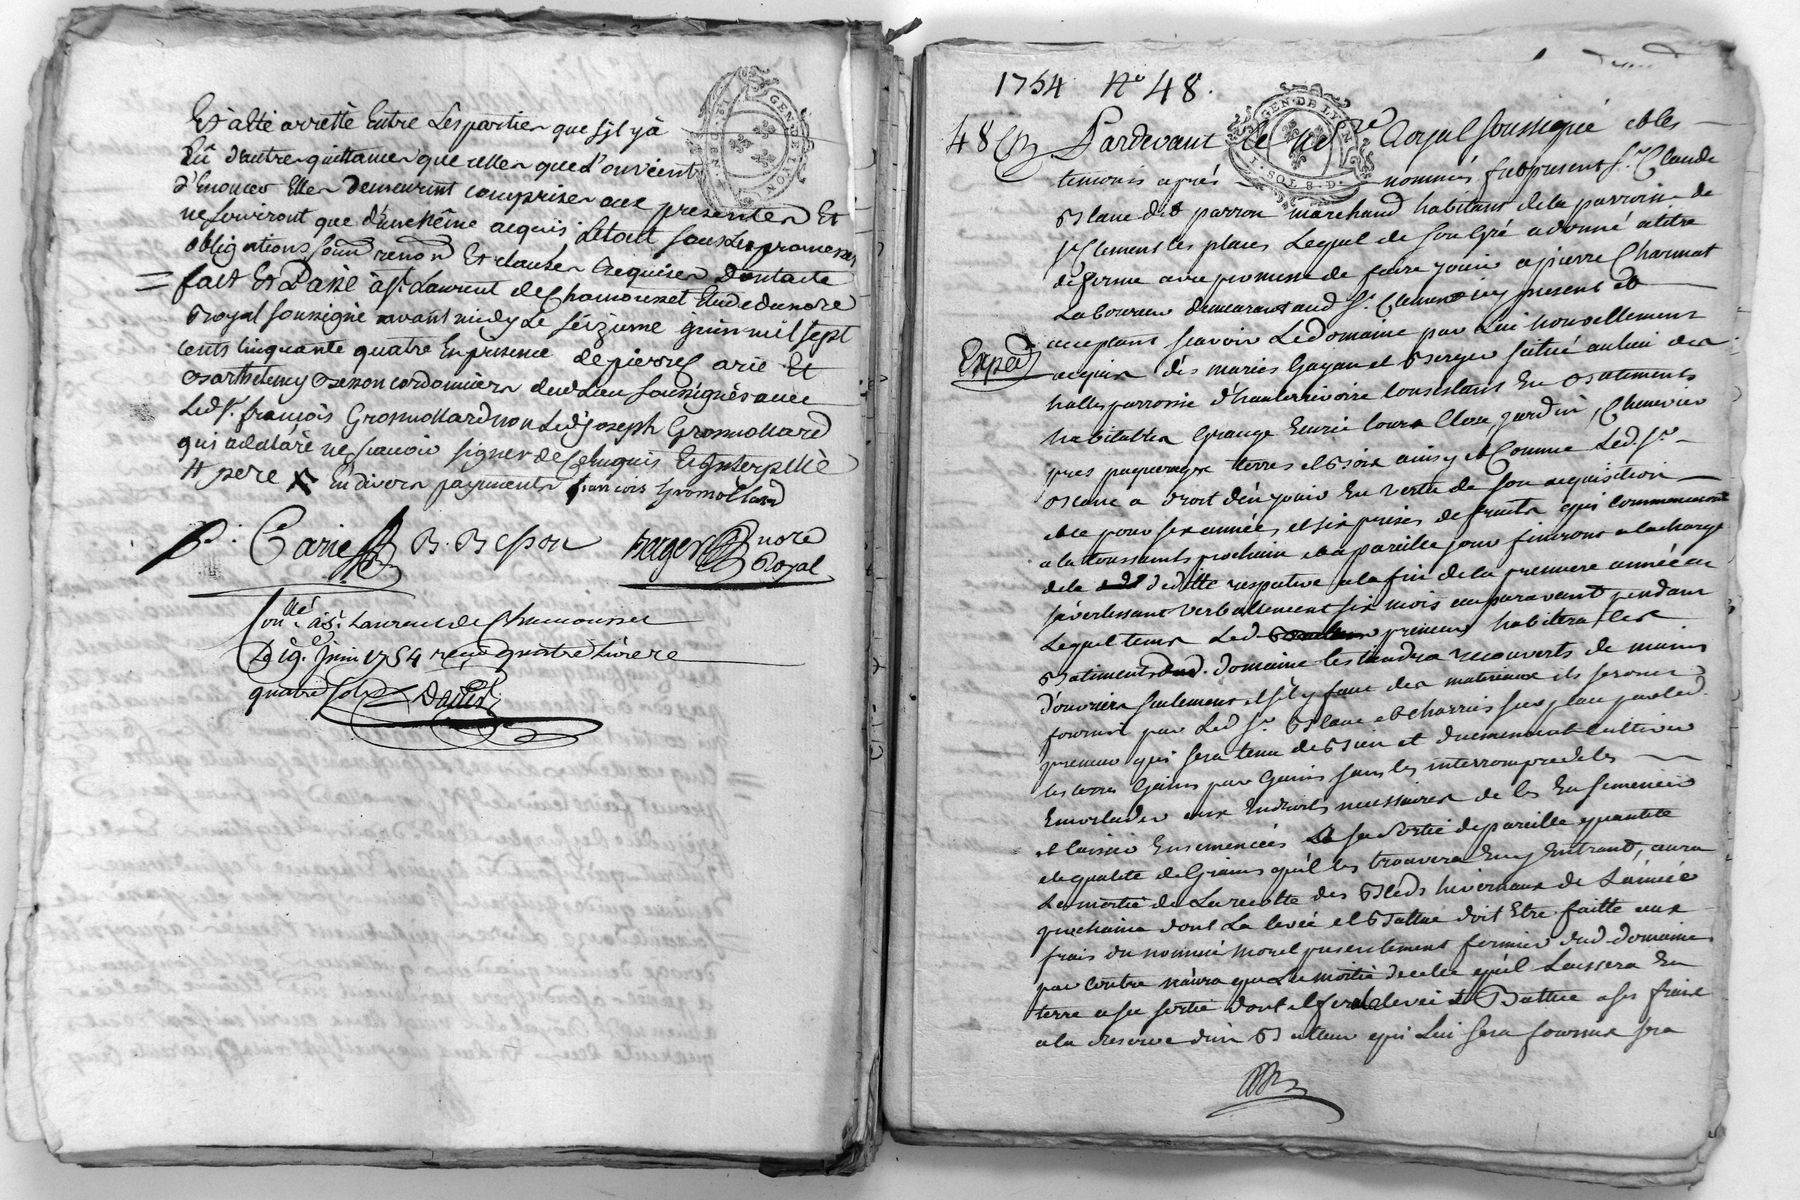 Et a été arretté Entre Les parties que s'il y a
Eû d'autres quittances que celles que d'ouvient
d'Enoncer Elles demeureront comprises aux presentes Et
ne serviront que d'un même acquis Le tout sous Les promesses
obligations soum. renon. Et clauses Requises Dont acte
= fait Et Passé à St. Laurent de Chamousset Etude du nore
Royal soussigné avant midy Le seizieme juin mil sept
cents cinquante quatre En presence de pierre Carie Et
Barthelemy Besson cordonniers dud. Lieu soussignés avec
Led. Sr. françois Gromollard non Led. joseph Gromollard
qui a declaré ne sçavoir signer de ce Enquis Et Interpellé
# pere x En divers payments francois Gromollard
p. Carie B. Besson Berger nore
Royal
Con.llé à St. Laurent de Chamousset
Le 19.e Juin 1754 reçu quatre Livres
quatre sols
1754 No 48.
48 Pardevant Le no.re Royal soussigné et les
temoins apres nommés fut present Sr. Claude
Blanc dit parron marchand habitant de la parroisse de
St. Clement les places Lequel de son Gré a donné a titre
de ferme avec promesse de faire jouir a pierre Charmet
Laboureur demeurant aud. St. Clement icy present et
acceptant scavoir Le domaine par Lui nouvellement
Exped.
acquis des mariés Gayan et Berger situé au lieu des
halles parroisse d'hauterivoire consistant En Batiments
habitables Grange Ecurie Cours Clos, jardin, Cheneviere
pres paquerages terres et Bois ainsy et Comme Led. Sr.
Blanc a droit d'en jouir En vertu de son acquisition
et ce pour six années, et six prises de fruits qui commenceront
a la toussaints prochain et a pareille jour finiront a la charge
de la deditte respective a la fin de la premiere année en
s'avertissant verballement six mois auparavant pendant
Lequel tems Led. preneur habitera les
Batiments dud. domaine les tiendra recouverts de mains
d'ouvriers seulement et s'il y faut des materiaux ils seront
fournis par Led. Sr. Blanc et charriés sur place par led.
preneur qui sera tenu de Bien et duement Cultiver
les terres Gains par Gains sans les interrompre de les
Enverchder aux Endroits necessaires de les Ensemencer
et laisser Ensemencées a sa sortie de pareille quantité
et qualité de Grains qu'il les trouvera En y Entrant, aura
La moitié de La recolte des Bleds hivernaux de L'année
prochaine dont La levée et Battue doit Etre faitte aux
frais du nommé morel presentement fermier dud. domaine
par contre n'aura que La moitié de celle qu'il Laissera En
terre a sa sortie dont il fera la levée et Battue a ses frais
a la reserve d'un Batteur qui Lui sera fournis par
GEN. DE LYON
1. SOL 8. D.
GEN. DE LYON